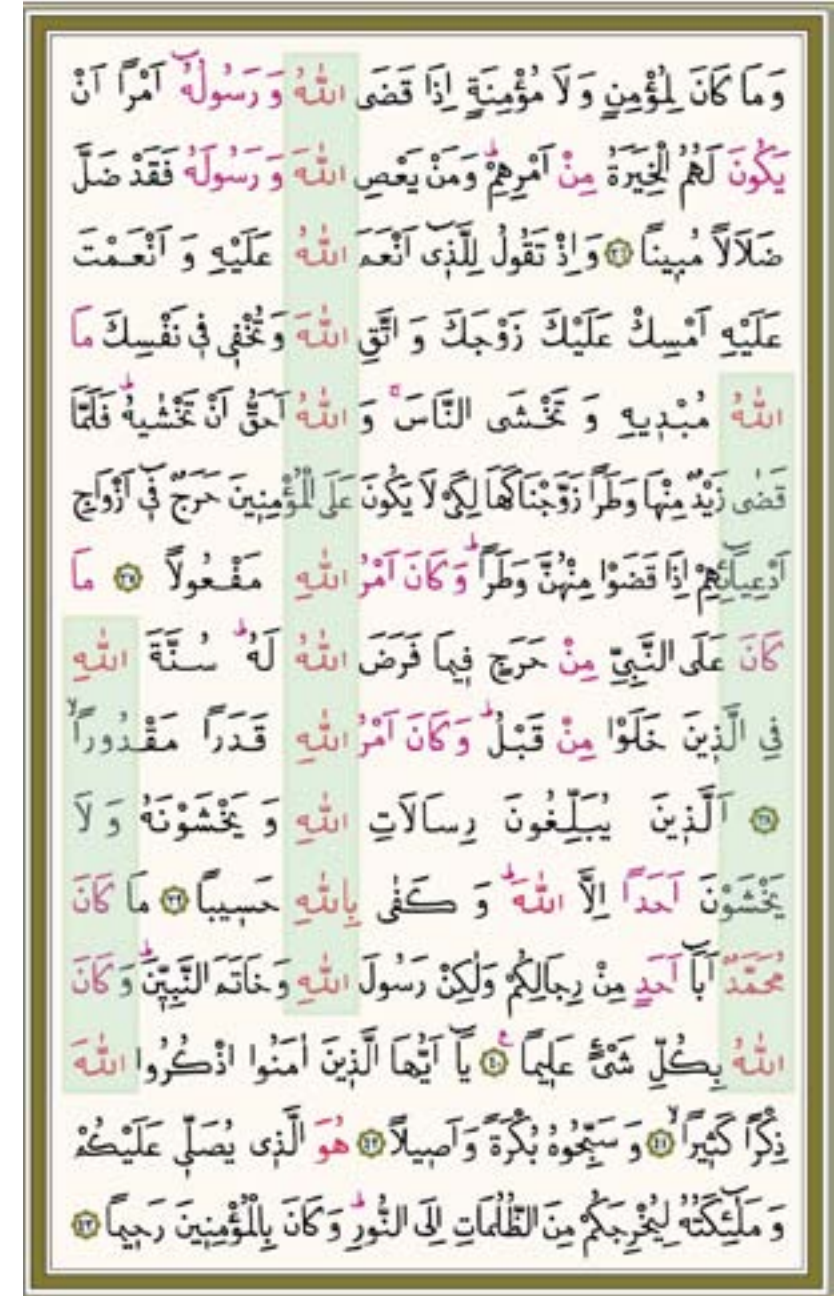 وَمَا كَانَ لِمُؤْمِنٍ وَلَا مُؤْمِنَةٍ اِذَا قَضَى اللّٰهُ وَرَسُولُهُٓ اَمْراً اَنْ
يَكُونَ لَهُمُ الْخِيَرَةُ مِنْ اَمْرِهِمْۜ وَمَنْ يَعْصِ اللّٰهَ وَرَسُولَهُ فَقَدْ ضَلَّ
ضَلَالاً مُب۪يناً ﴿٣٦﴾ وَاِذْ تَقُولُ لِلَّذ۪ٓي اَنْعَمَ اللّٰهُ عَلَيْهِ وَاَنْعَمْتَ
عَلَيْهِ اَمْسِكْ عَلَيْكَ زَوْجَكَ وَاتَّقِ اللّٰهَ وَتُخْف۪ي ف۪ي نَفْسِكَ مَا
اللّٰهُ مُبْد۪يهِ وَتَخْشَى النَّاسَۚ وَاللّٰهُ اَحَقُّ اَنْ تَخْشٰيهُۜ فَلَمَّا
قَضٰى زَيْدٌ مِنْهَا وَطَراً زَوَّجْنَاكَهَا لِكَيْ لَا يَكُونَ عَلَى الْمُؤْمِن۪ينَ حَرَجٌ ف۪ٓي اَزْوَاجِ
اَدْعِيَٓائِهِمْ اِذَا قَضَوْا مِنْهُنَّ وَطَراًۜ وَكَانَ اَمْرُ اللّٰهِ مَفْعُولاً ﴿٣٧﴾ مَا
كَانَ عَلَى النَّبِيِّ مِنْ حَرَجٍ ف۪يمَا فَرَضَ اللّٰهُ لَهُۜ سُنَّةَ اللّٰهِ
فِي الَّذ۪ينَ خَلَوْا مِنْ قَبْلُۜ وَكَانَ اَمْرُ اللّٰهِ قَدَراً مَقْدُوراًۙ
﴿٣٨﴾ اَلَّذ۪ينَ يُبَلِّغُونَ رِسَالَاتِ اللّٰهِ وَيَخْشَوْنَهُ وَلَا
يَخْشَوْنَ اَحَداً اِلَّا اللّٰهَۜ وَكَفٰى بِاللّٰهِ حَس۪يباً ﴿٣٩﴾ مَا كَانَ
مُحَمَّدٌ اَبَٓا اَحَدٍ مِنْ رِجَالِكُمْ وَلٰكِنْ رَسُولَ اللّٰهِ وَخَاتَمَ النَّبِيّ۪نَۜ وَكَانَ
اللّٰهُ بِكُلِّ شَيْءٍ عَل۪يماً۟ ﴿٤٠﴾ يَٓا اَيُّهَا الَّذ۪ينَ اٰمَنُوا اذْكُرُوا اللّٰهَ
ذِكْراً كَث۪يراًۙ ﴿٤١﴾ وَسَبِّحُوهُ بُكْرَةً وَاَص۪يلاً ﴿٤٢﴾ هُوَ الَّذ۪ي يُصَلّ۪ي عَلَيْكُمْ
وَمَلٰٓئِكَتُهُ لِيُخْرِجَكُمْ مِنَ الظُّلُمَاتِ اِلَى النُّورِۜ وَكَانَ بِالْمُؤْمِن۪ينَ رَح۪يماً ﴿٤٣﴾